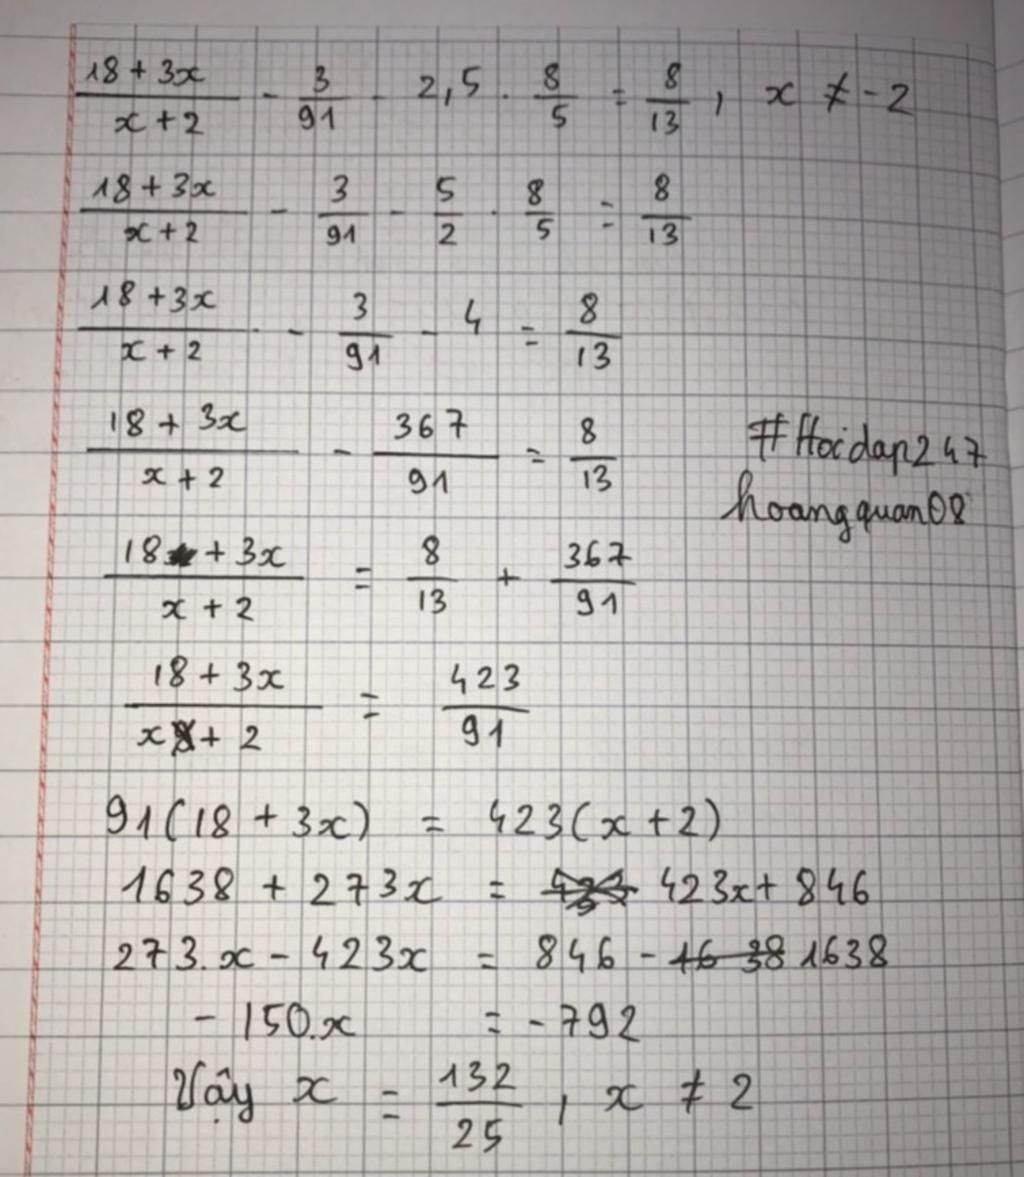 (18 + 3x)/(x + 2) - 3/91 - 2,5 . 8/5 = 8/13 , x ≠ -2
(18 + 3x)/(x + 2) - 3/91 - 5/2 . 8/5 = 8/13
(18 + 3x)/(x + 2) - 3/91 - 4 = 8/13
(18 + 3x)/(x + 2) - 367/91 = 8/13
#Hoidap247
hoangquan08
(18 + 3x)/(x + 2) = 8/13 + 367/91
(18 + 3x)/(x + 2) = 423/91
91(18 + 3x) = 423(x + 2)
1638 + 273x = 423x + 846
273.x - 423x = 846 - 1638
- 150.x = - 792
Vậy x = 132/25 , x ≠ 2